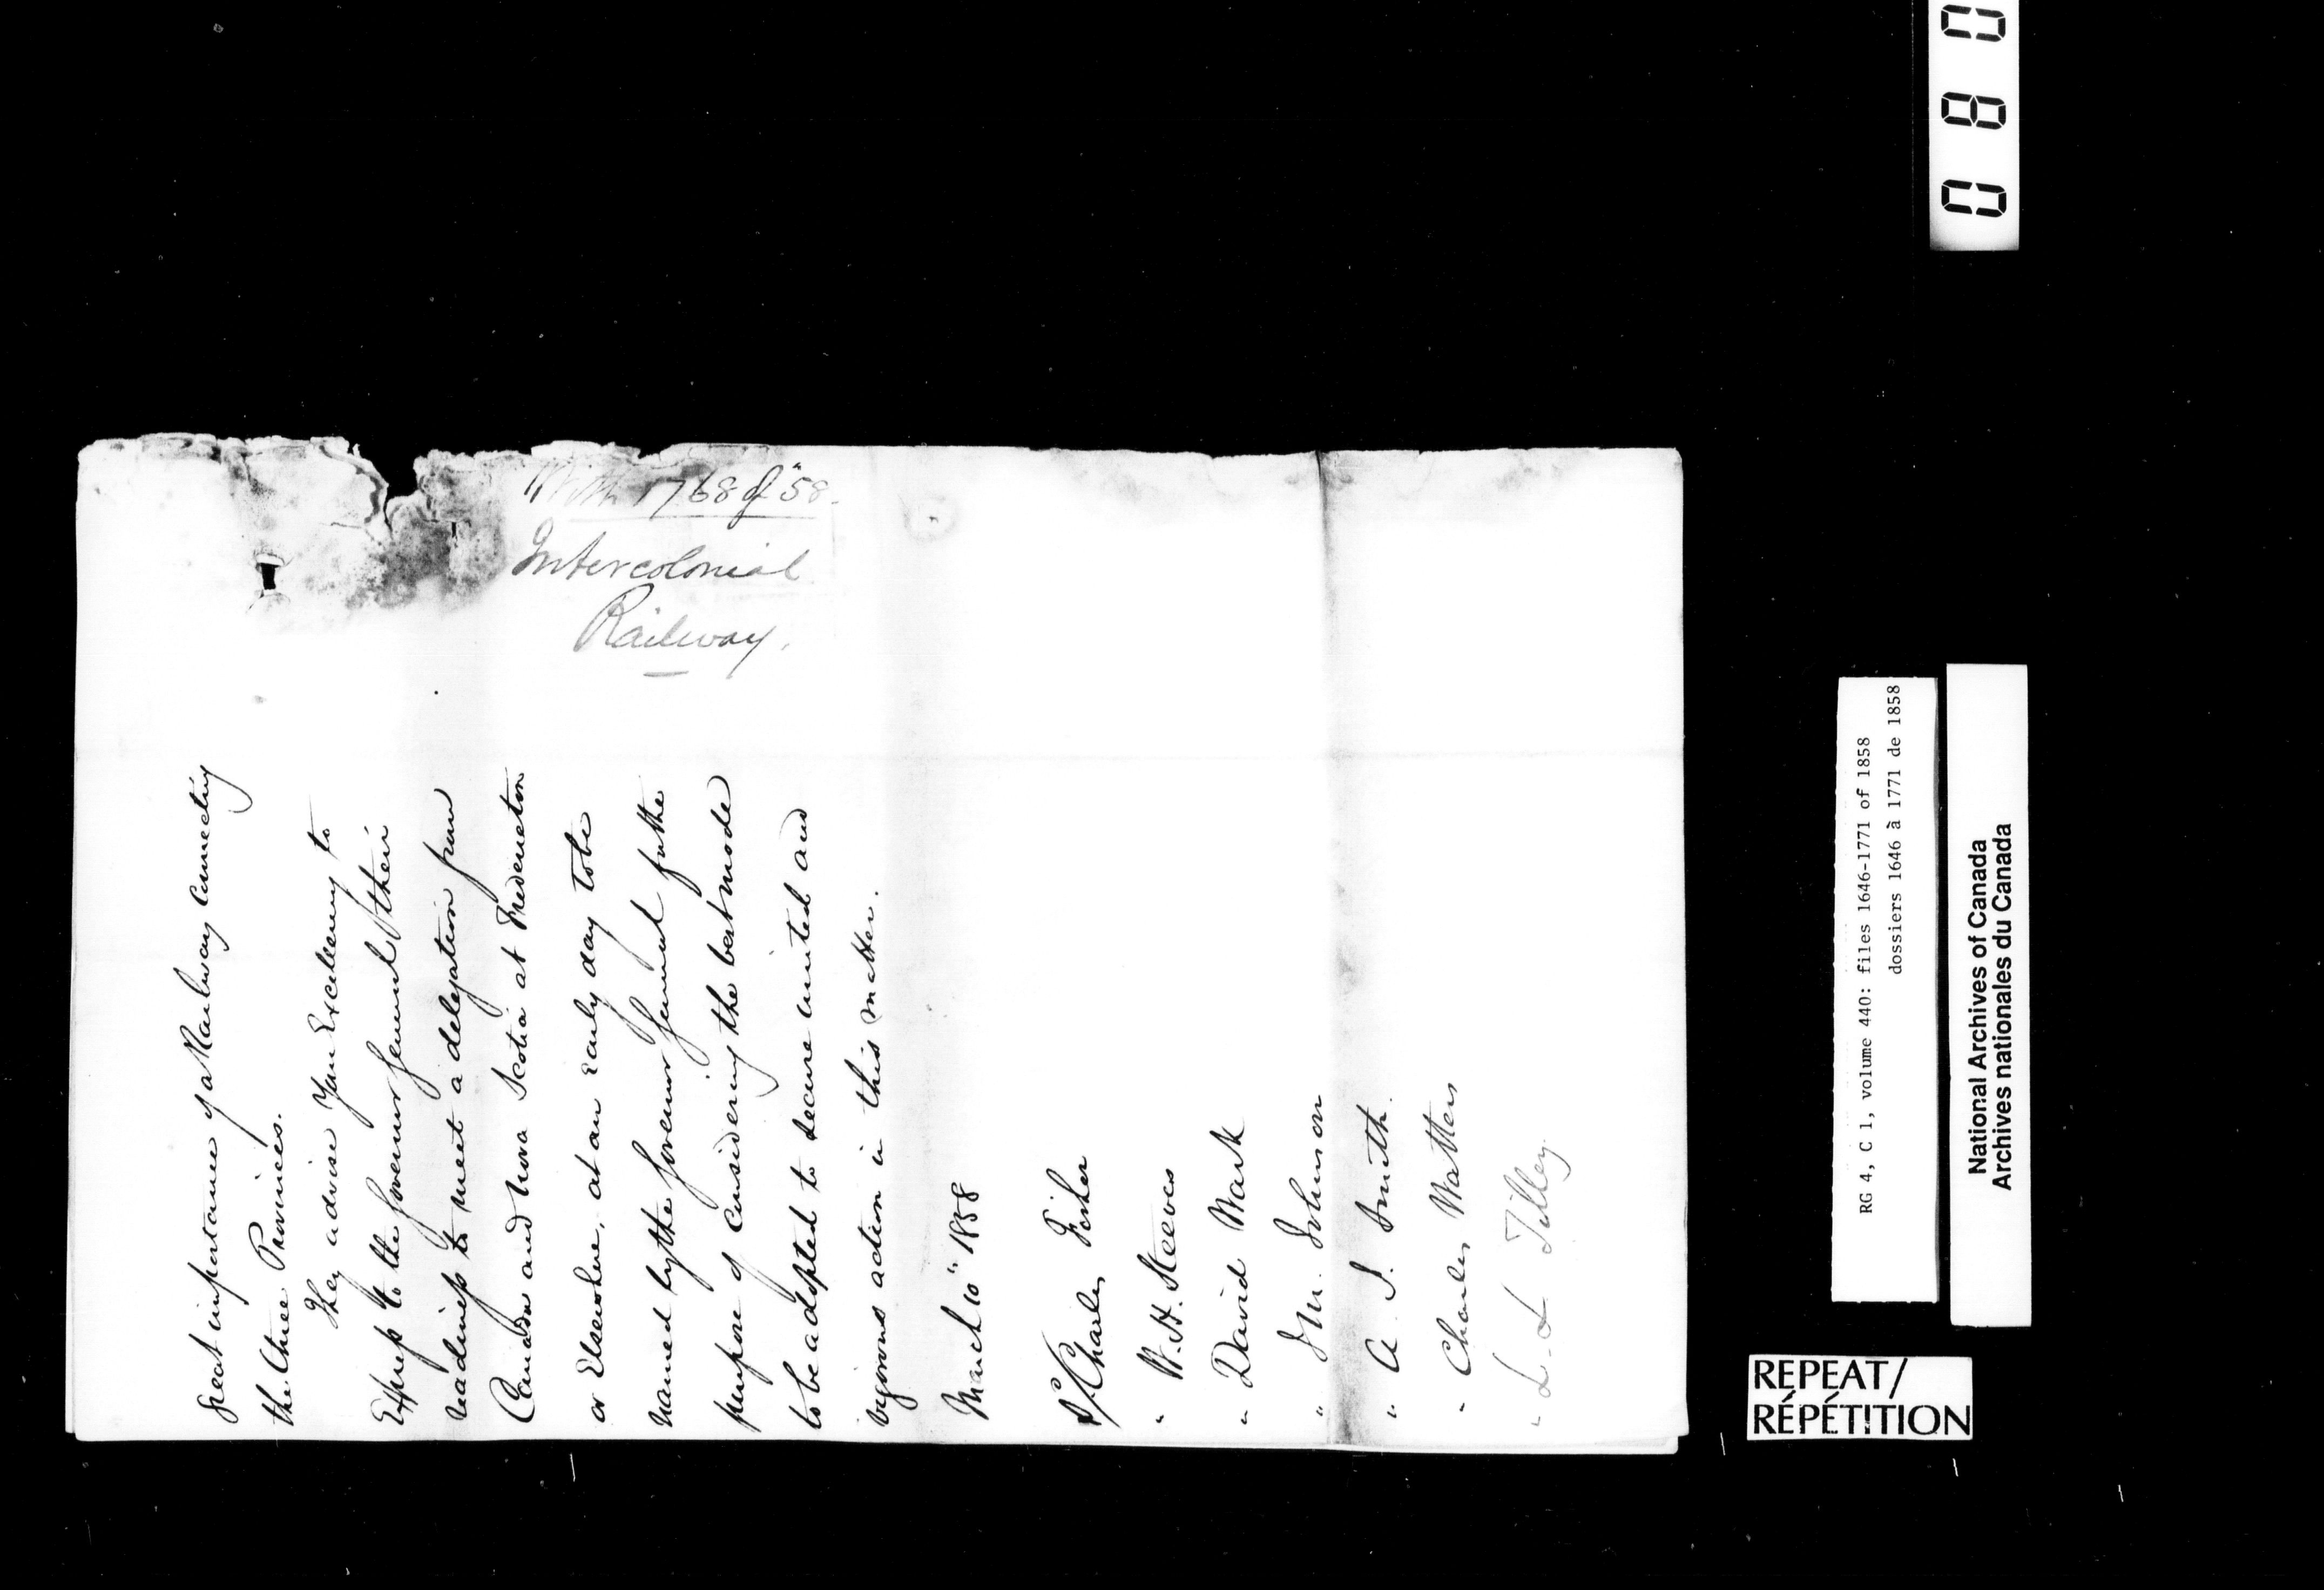 With 1768 of "58.
Intercolonial
Railway.
great importance of a Railway connecting
the three Provinces.
They advise Your Excellency to
Express to the Governor General their
readiness to meet a delegation from
Canada and Nova Scotia at Fredericton
or Elsewhere, at an Early day to be
named by the Governor General for the
purpose of considering the best mode
to be adopted to secure united and
vigorous action in this matter.
March 10" 1858
Charles Fisher
" W. H. Steeves
" David Wark
" Johnson
" A. J. Smith.
" Charles Watters
" L. L Tilley
080
RG 4, C 1, volume 440: files 1646-1771 of 1858
dossiers 1646 à 1771 de 1858
National Archives of Canada
Archives nationales du Canada
REPEAT/
RÉPÉTITION